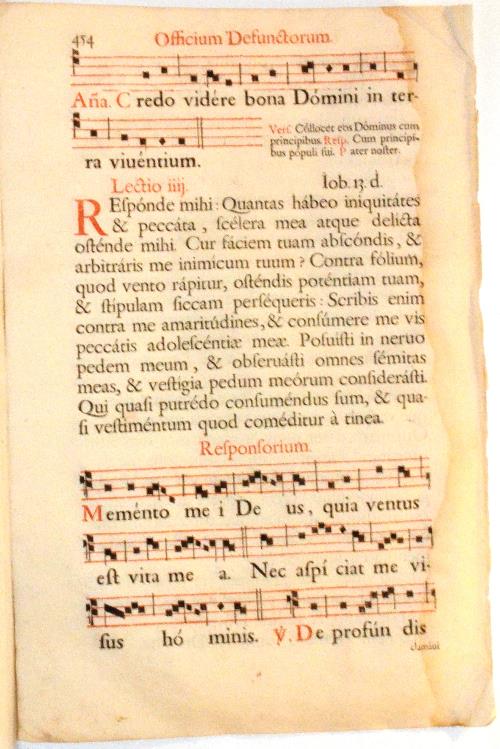 454 Officium Defunctorum.
Aña. C redo vidére bona Dómini in ter-
ra viuéntium.
Vers. Cóllocet eos Dóminus cum
principibus. Resp. Cum principi-
bus pópuli sui. P ater noster.
Lectio iiij. Iob. 13. d.
REſpónde mihi: Quantas hábeo iniquitátes
& peccáta, ſcélera mea atque delicta
oſténde mihi. Cur fáciem tuam abſcóndis, &
arbitráris me inimícum tuum? Contra fólium,
quod vento rápitur, oſténdis poténtiam tuam,
& ſtípulam ſiccam perſéqueris: Scribis enim
contra me amaritúdines, & conſúmere me vis
peccátis adoleſcéntiæ meæ. Poſuiſti in neruo
pedem meum, & obſeruáſti omnes ſémitas
meas, & veſtígia pedum meórum conſideráſti.
Qui quaſi putrédo conſuméndus ſum, & qua-
ſi veſtiméntum quod coméditur à tínea.
Reſponſorium.
Meménto me i De us, quia ventus
eſt vita me a. Nec aſpí ciat me vi-
ſus hó minis. ℣. De profún dis
clamáui